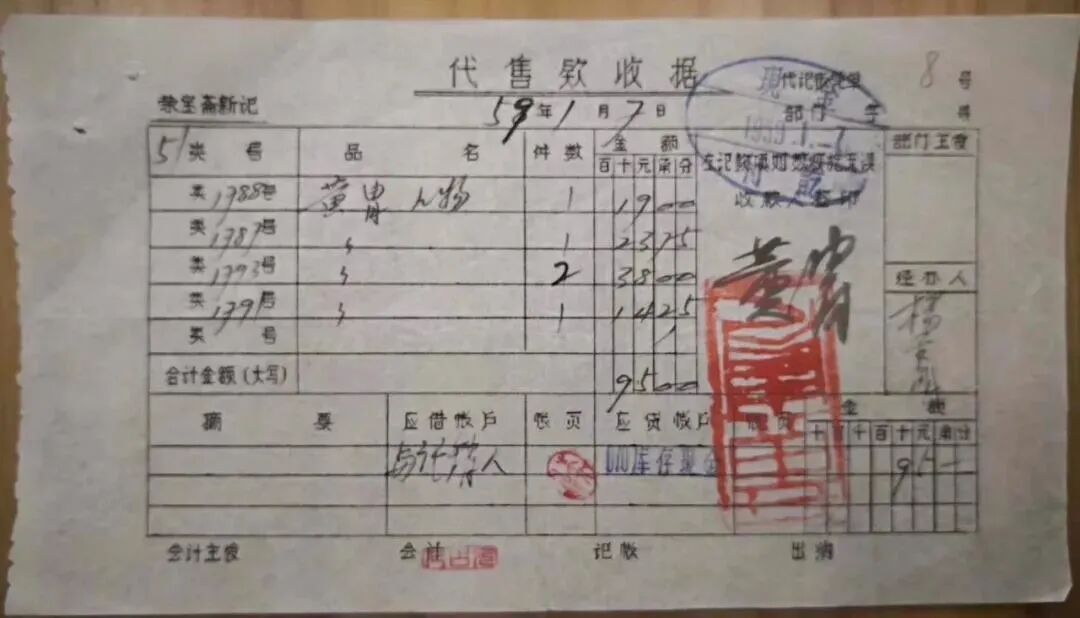 代售款收据
8号
荣宝斋新记
59年1月7日
代记账凭单
部门 字 号
51类号 品名 件数 金额 部门主管
百十元角分
左记款项如数收讫无误
收款人签印
类1388号 黄胄人物 1 1900
类1387号 〃 1 2375
类1393号 〃 2 3800
类1391号 〃 1 1425
类 号
黄胄
经办人
合计金额(大写) 9500
摘要 应借帐户 帐页 应贷帐户 帐页 金额
十 千百十元角分
010库存现金 95—
会计主管 会计 记账 出纳
1959.1.7